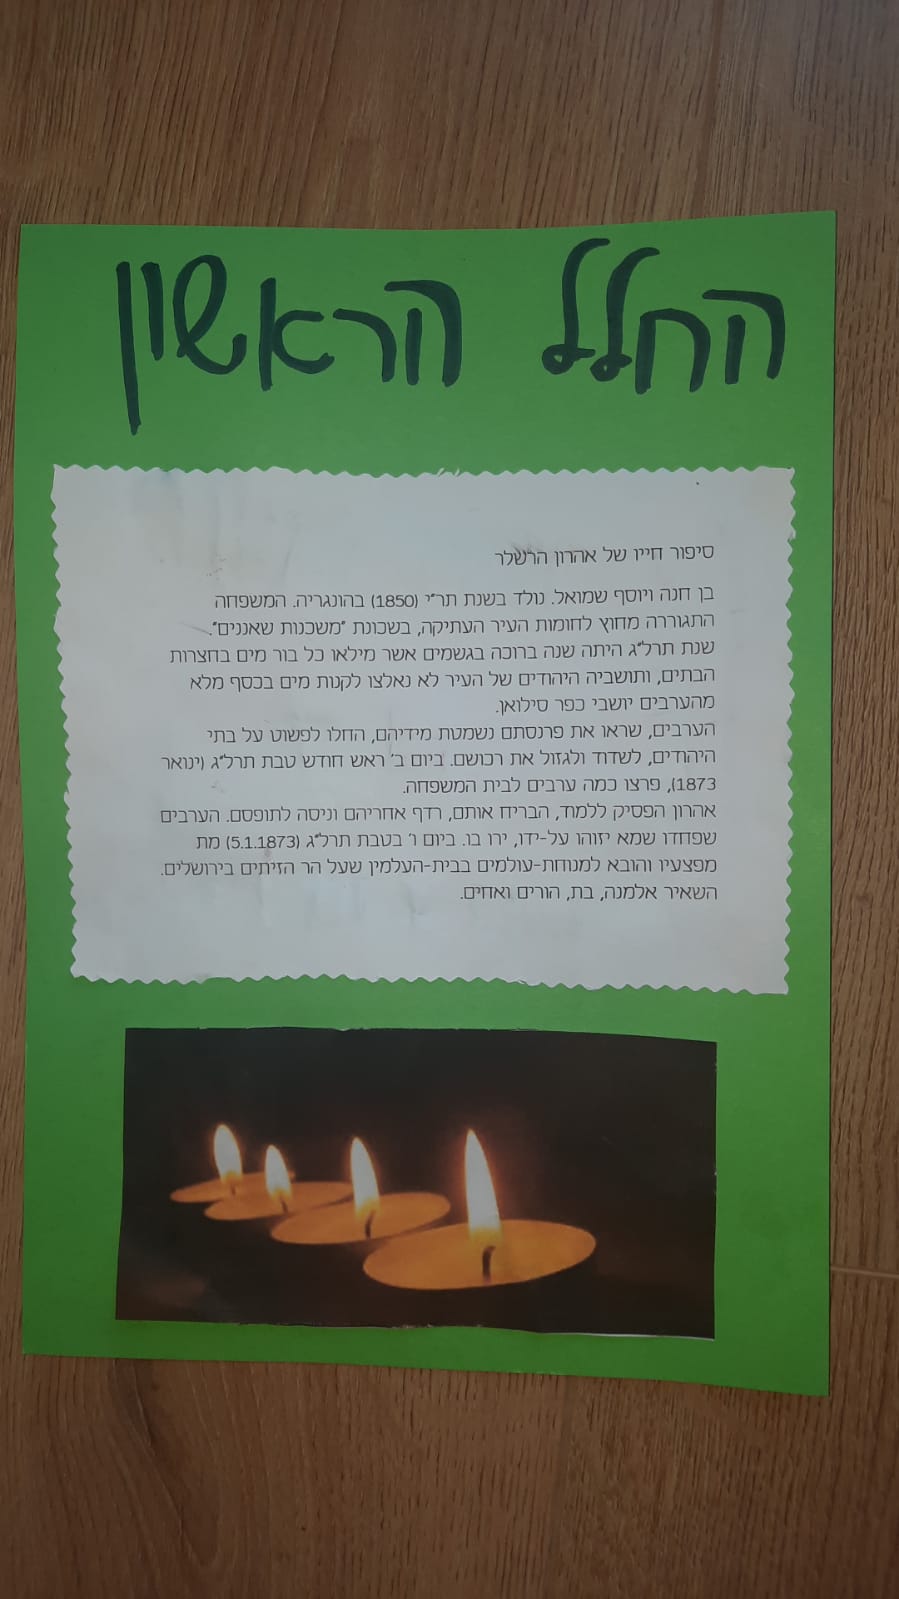 החלל הראשון
סיפור חייו של אהרון הרשלר
בן חנה ויוסף שמואל. נולד בשנת תר״י (1850) בהונגריה. המשפחה
התגוררה מחוץ לחומות העיר העתיקה, בשכונת ״משכנות שאננים״.
שנת תרל״ג היתה שנה ברוכה בגשמים אשר מילאו כל בור מים בחצרות
הבתים, ותושביה היהודים של העיר לא נאלצו לקנות מים בכסף מלא
מהערבים יושבי כפר סילואן.
הערבים, שראו את פרנסתם נשמטת מידיהם, החלו לפשוט על בתי
היהודים, לשדוד ולגזול את רכושם. ביום ב׳ ראש חודש טבת תרל״ג (ינואר
1873), פרצו כמה ערבים לבית המשפחה.
אהרון הפסיק ללמוד, הבריח אותם, רדף אחריהם וניסה לתופסם. הערבים
שפחדו שמא יזוהו על-ידו, ירו בו. ביום ו׳ בטבת תרל״ג (5.1.1873) מת
מפצעיו והובא למנוחת-עולמים בבית-העלמין שעל הר הזיתים בירושלים.
השאיר אלמנה, בת, הורים ואחים.